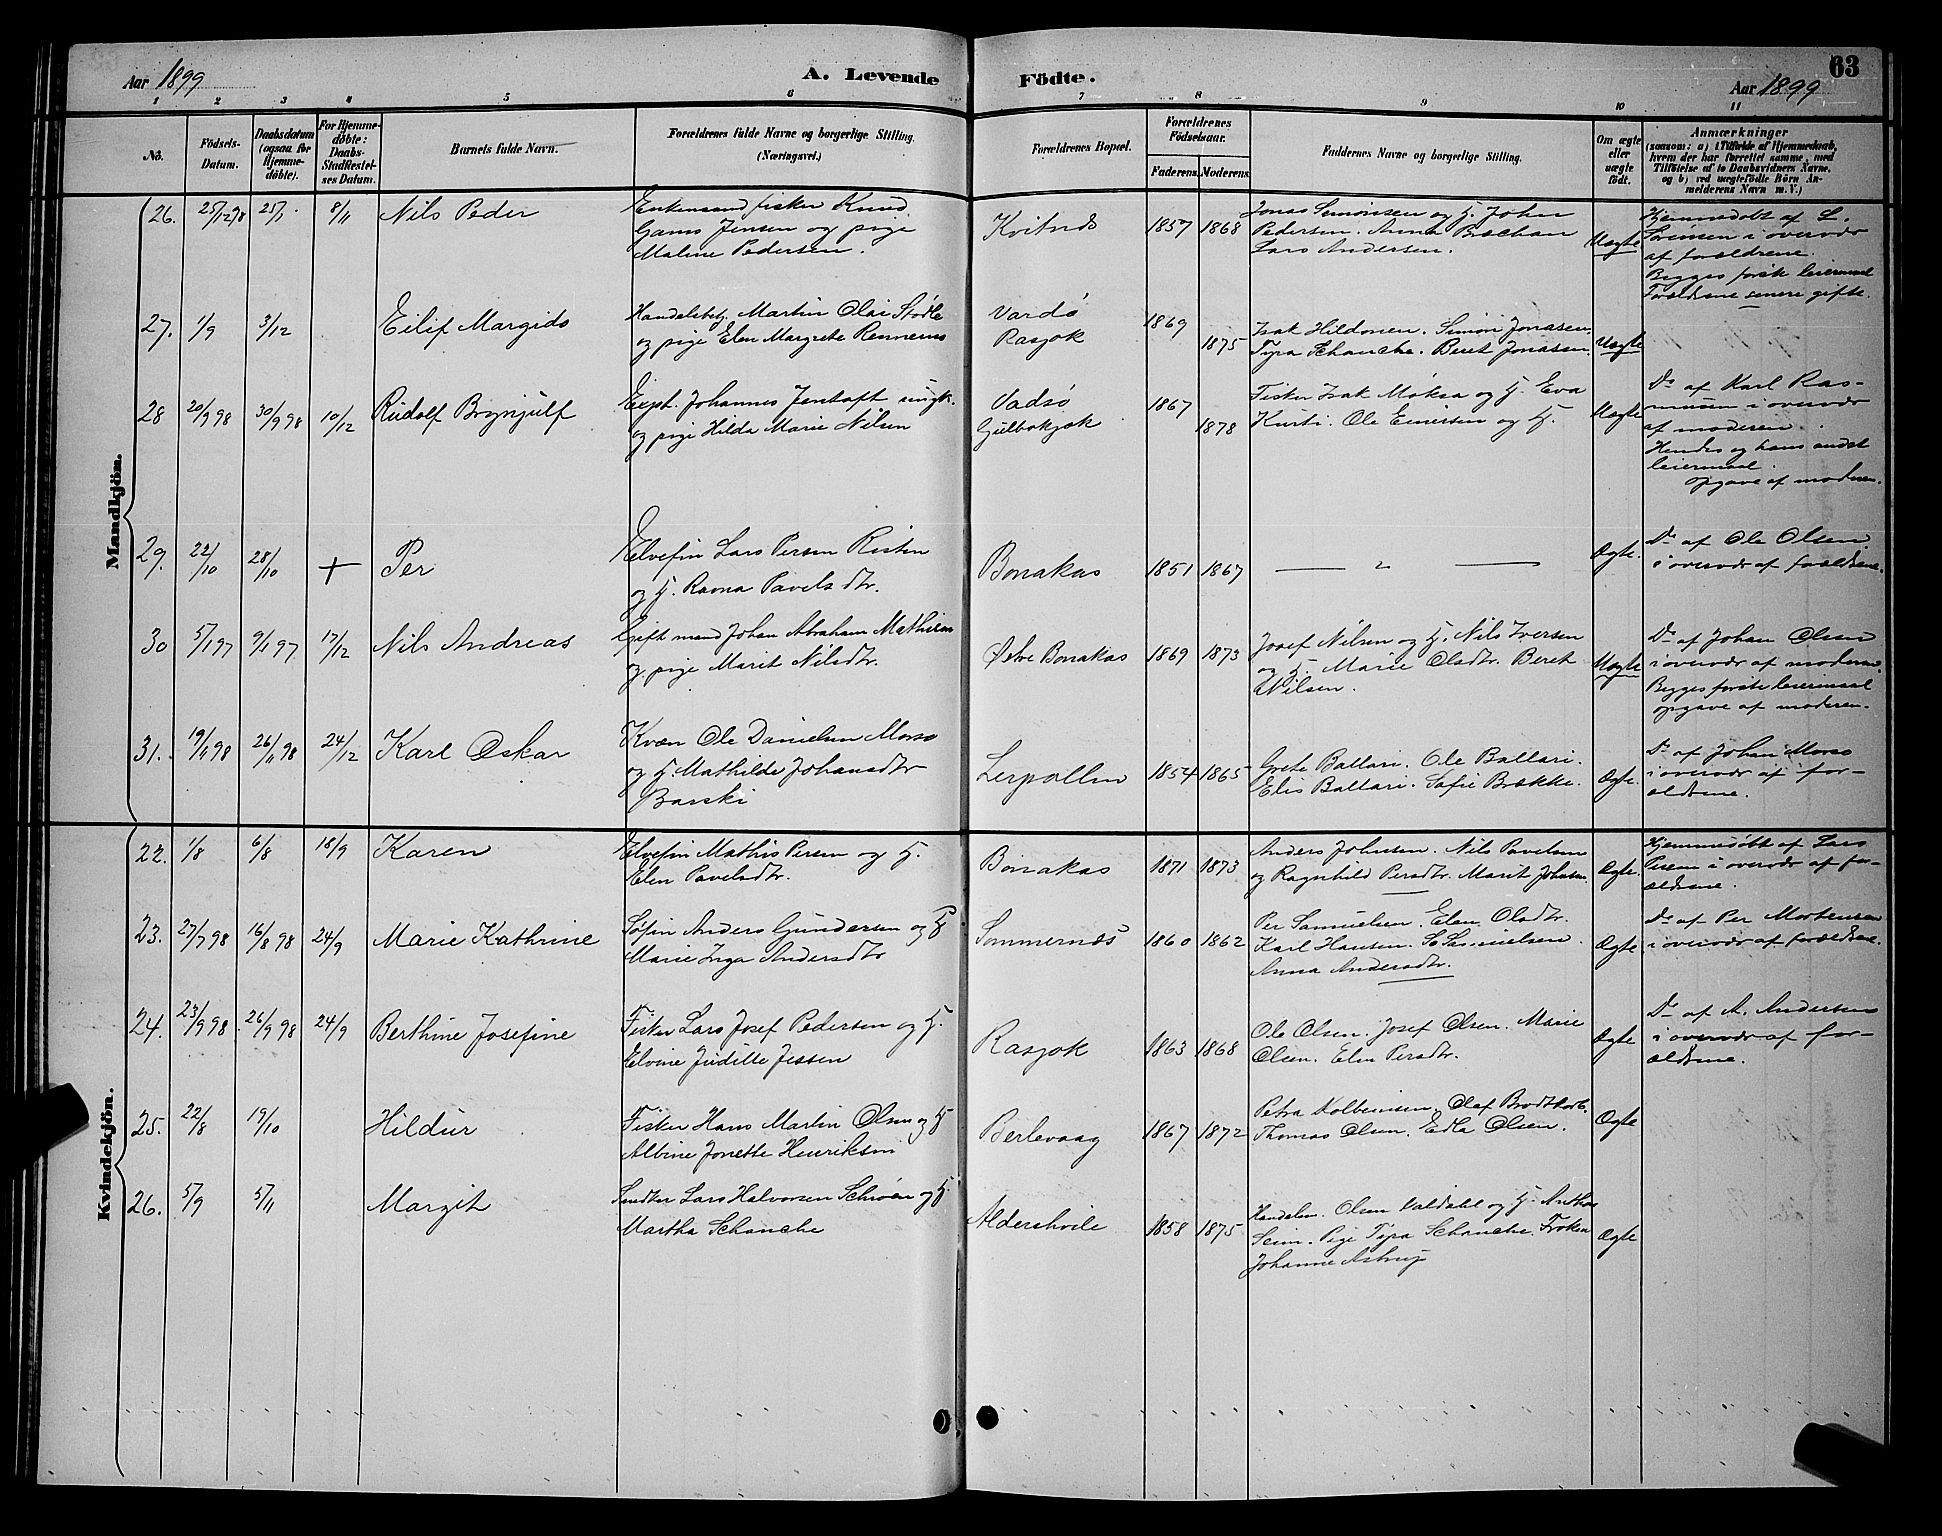 Aar 1899
A. Levende
Födte.
63
Aar 1899
1 2 3 4 5 6 7 8 9 10 11
No.
Födsels-
Datum.
Daabsdatum
(ogsaa for
Hjemme-
döbte).
For Hjemme-
döbte:
Daabs-
Stadfæstel-
ses Datum.
Barnets fulde Navn.
Forældrenes fulde Navne og borgerlige Stilling.
(Næringsvei.)
Forældrenes Bopæl.
Forældrenes
Födselsaar.
Faderens. Moderens.
Faddernes Navne og borgerlige Stilling.
Om ægte
eller
uægte
födt.
Anmærkninger
(saasom: a) i Tilfælde af Hjemmedaab,
hvem der har forrettet samme, med
Tilföielse af to Daabsvidners Navne,
og b) ved uægtefödte Börn An-
melderens Navn m. V.)
Mandkjön.
26. 25/12 98 25/1 8/11 Nils Peder
Enkemand fisker Knud
Gams Jensen og pige
Maline Pedersen.
Kvitnes 1857 1868
Jonas Simonsen og H. John
Pedersen. Anna
Lars Andersen.
Uægte
Hjemmedøbt af L.
Sørensen i overvær
af forældrene.
Begges første leiermaal
Forældrene senere gifte.
27. 1/9 3/12 Eilif Margido
Handelsbetj. Martin Olai Stødle
og pige Elen Margrete
Vardø
Rasjok
1869
1875
Isak Hildonen. Simon Jonassen.
Tyra Schanche. Beret Jonassen.
Uægte
28 20/9 98 30/9 98 10/12 Rudolf Brynjulf
Expt. Johannes Jentoft ungk.
og pige Hilda Marie Nilsen
Vadsø
Gulbokjok
1867
1878
Fisker Isak Møksa og H. Eva
Kurti. Ole Einersen og H.
Uægte
Do af Karl Ras-
mussen i overvær
af moderen.
Hendes og hans andet
leiermaal.
opgave af moderen.
29. 22/10 28/10 + Per
Elvefin Lars Persen Risten
og H. Ravna Pavelsdtr.
Bonakas 1851 1867
— " —
Ægte.
Do af Ole Olsen
i overvær af forældrene.
30 5/1 97 9/1 97 17/12 Nils Andreas
Gift mand Johan Abraham Mathisen
og pige Marit Nilsdtr.
Østre Bonakas 1869 1873
Josef Nilsen og H. Nils Iversen
og H. Marie Olsdtr. Beret
Nilsen.
Uægte
Do af Johan Olsen
i overvær af moderen.
Begges første leiermaal
opgave af moderen.
31. 19/11 98 26/11 98 24/12 Karl Oskar
Kvæn Ole Danielsen Morso
og H. Mathilde Johansdtr
Barski
Lerpollen 1854 1865
Grete Ballari. Ole Ballari.
Elis Ballari. Sofie Brække.
Ægte.
Do af Johan Morso
i overvær af for-
ældrene.
Kvindekjön.
22. 1/8 6/8 18/9 Karen
Elvefin Mathis Persen og H.
Elen Pavelsdtr.
Bonakas 1871 1873
Anders Johnsen. Nils Pavelsen
og Ragnhild Persdtr. Marit Johnsen
Ægte.
Hjemmedøbt af Lars
Persen i overvær af for-
ældrene.
23. 27/7 98 16/8 98 24/9 Marie Kathrine
Søfin Anders Gundersen og H
Marie Inga Andersdtr
Sommernæs 1860 1862
Per Samuelsen. Elen Olsdtr.
Karl Hansen. S. Samuelsen.
Anna Andersdtr.
Ægte
Do af Per Mortensen
i overvær af forældrene.
24. 23/9 98 26/9 98 24/9 Berthine Josefine
Fisker Lars Josef Pedersen og H.
Elvine Juditte Jessen
Rasjok 1863 1868
Ole Olsen. Josef Olsen. Marie
Olsen. Elen Persdtr.
Ægte
Do af A. Andersen
i overvær af for-
ældrene.
25. 22/8 19/10 Hildur
Fisker Hans Martin Olsen og H
Albine Jonette Henriksen
Berlevaag 1867 1872
Petra Kolbeinsen. Olaf Brodtkorb.
Thomas Olsen. Edla Olsen.
Ægte
26. 5/9 5/11 Margit
Lars Halvorsen Schrøen og H.
Martha Schanche
Aldershvile 1858 1875
Handelsm. Olsen Valdahl og H. Anthon
Seim. Pige Tyra Schanche. Frøken
Johanne Astrup
Ægte